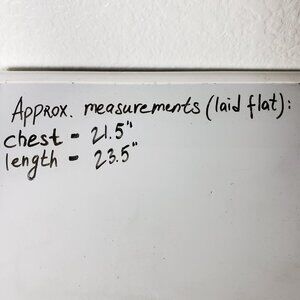 Approx. measurements (laid flat):
chest - 21.5"
length - 23.5"